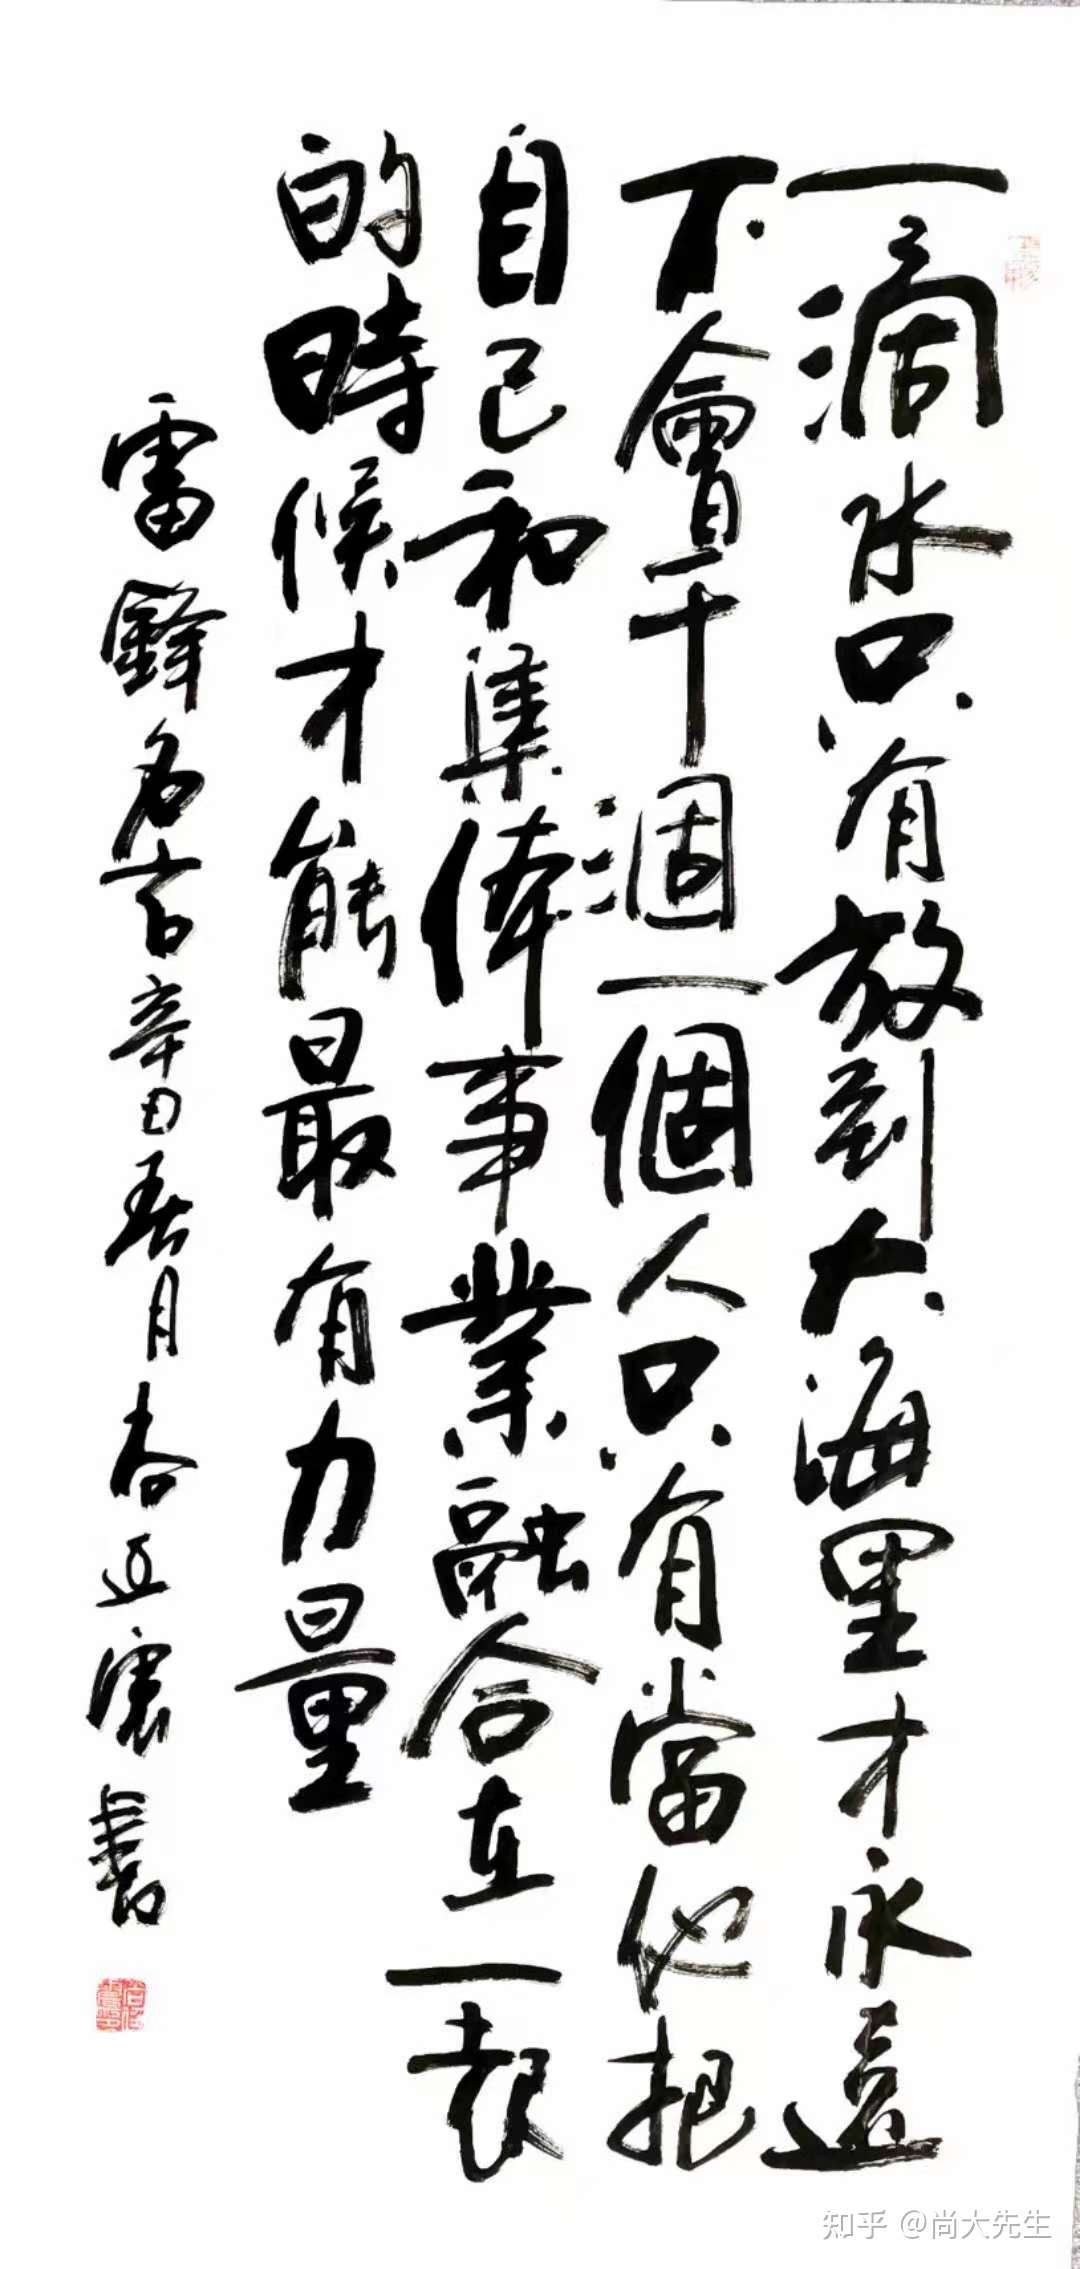 一滴水只有放到大海里才永遠
不會干涸一個人只有當他把
自己和集体事業融合在一起
的時候才能最有力量
雷鋒名言辛丑春月書
知乎 @尚大先生